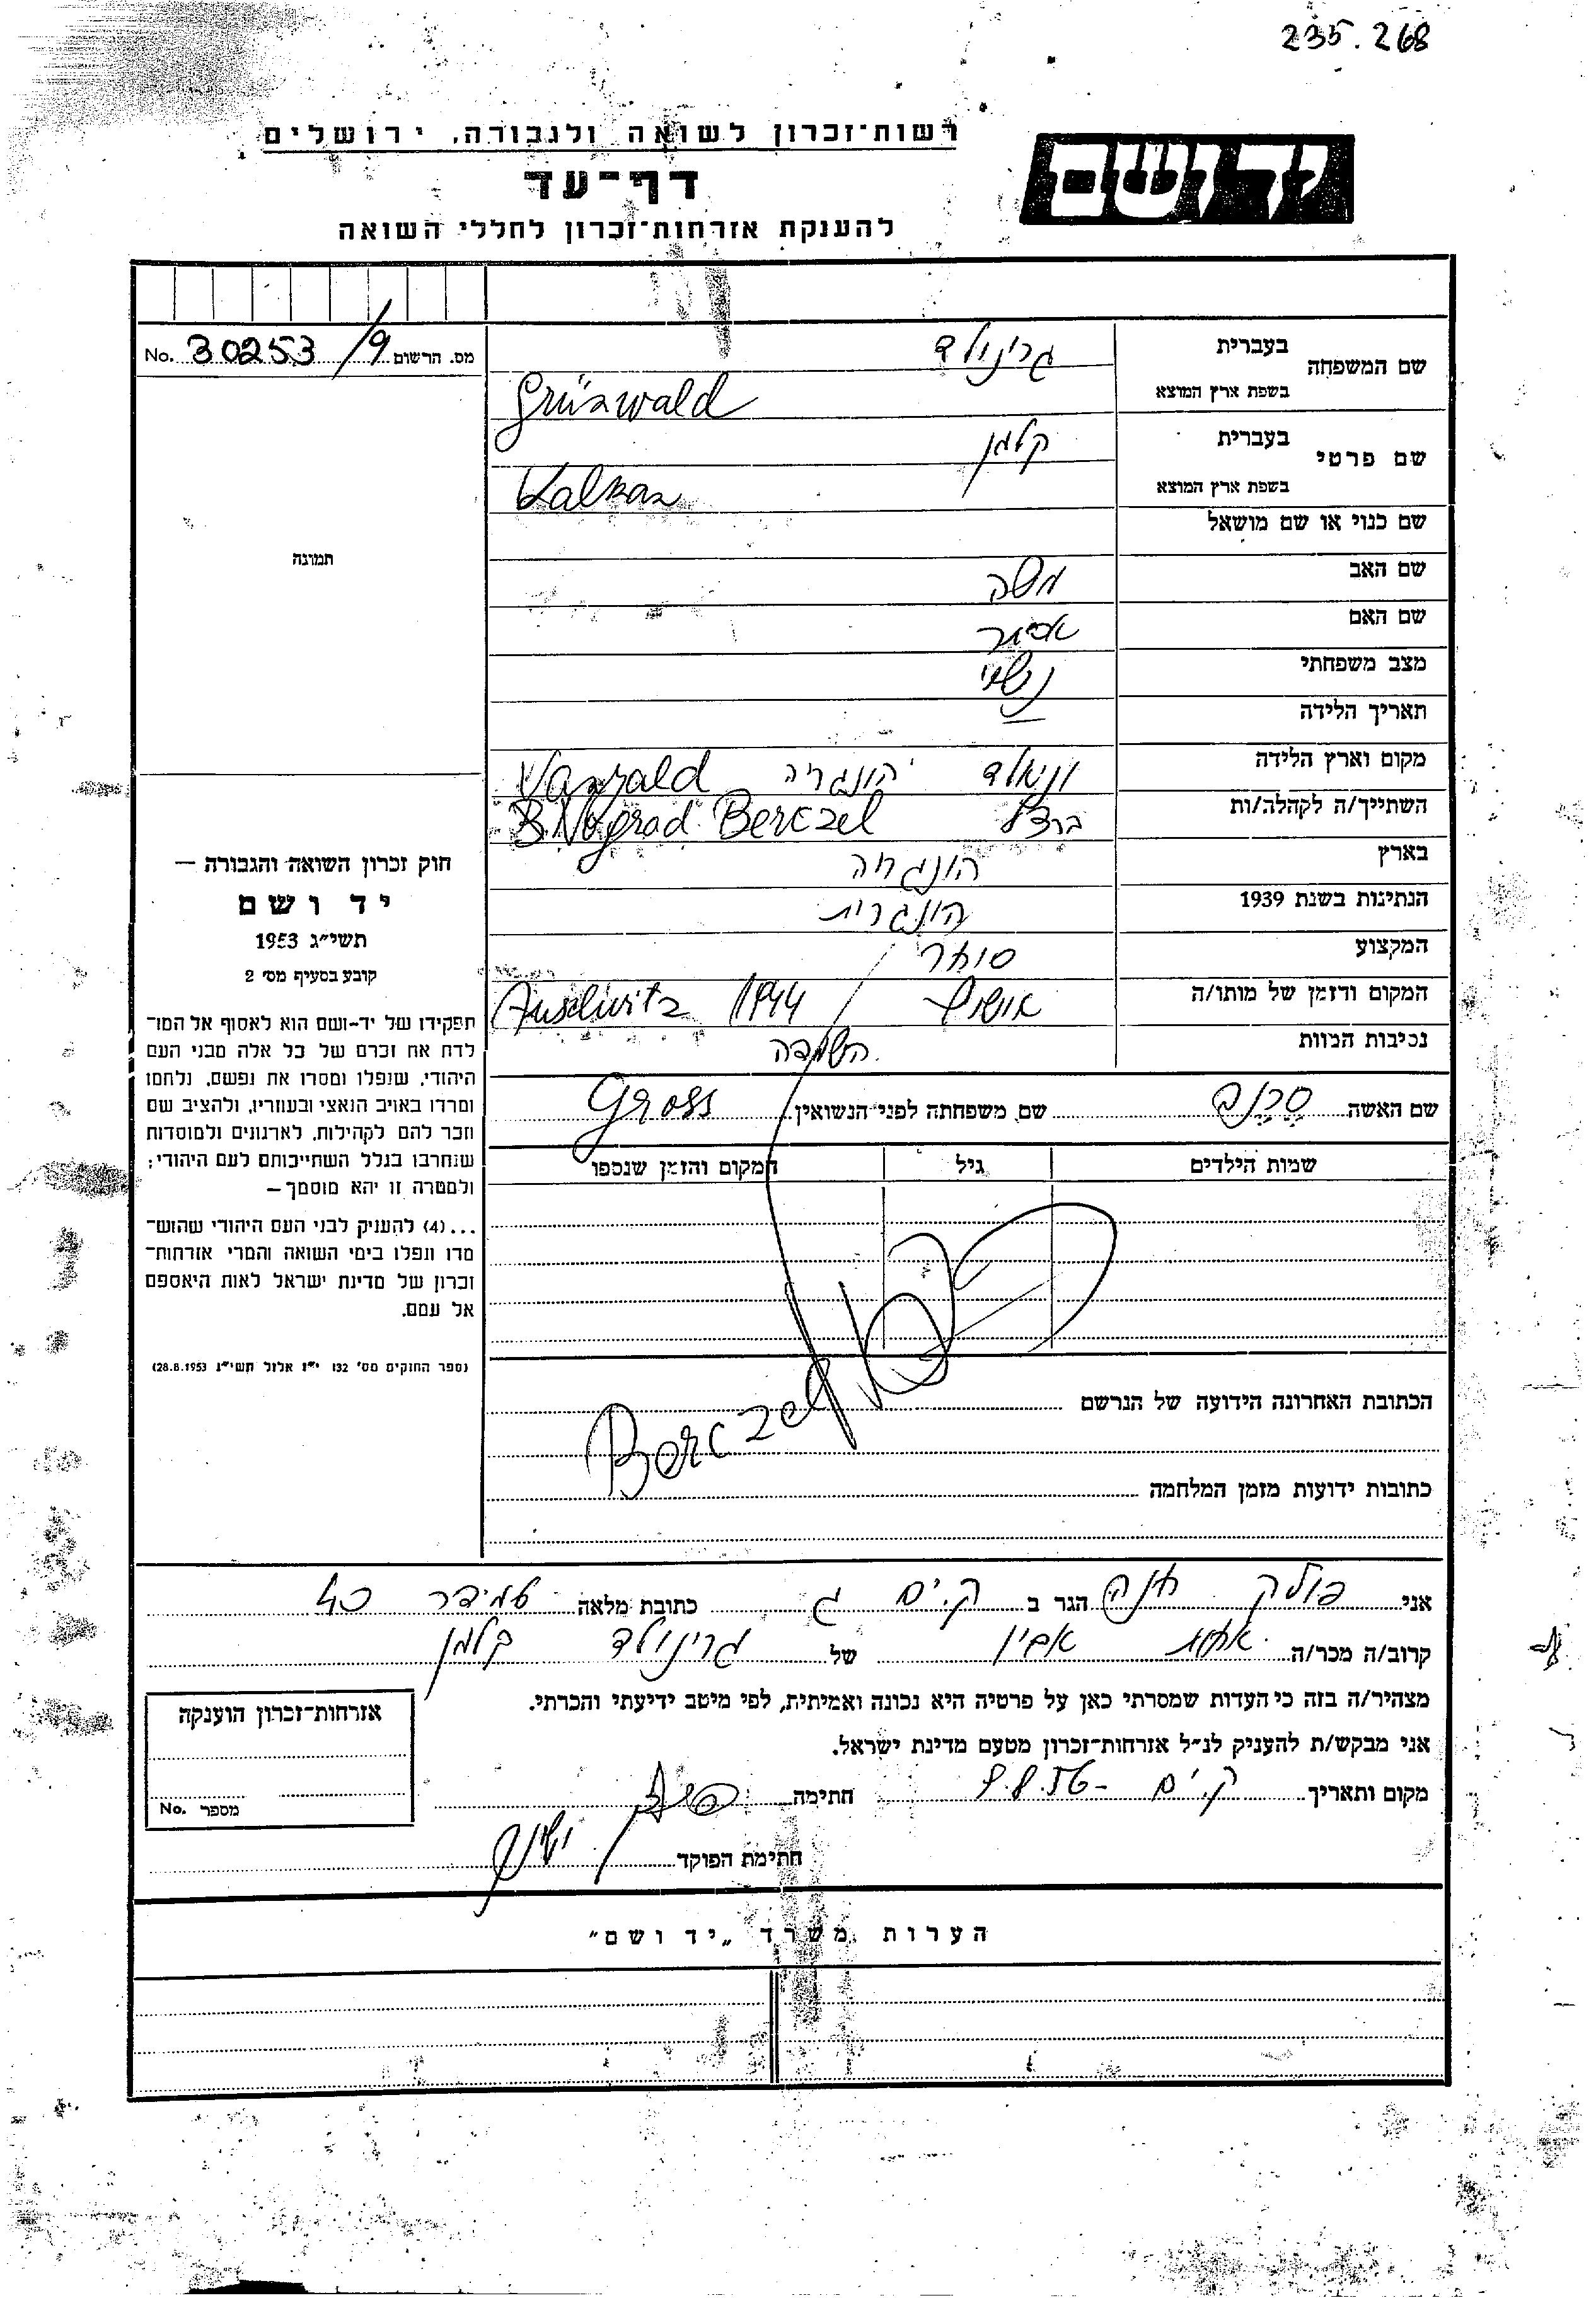 235.268
יד ושם
רשות־זכרון לשואה ולגבורה, ירושלים
דף־עד
להענקת אזרחות־זכרון לחללי השואה
מס. הרשום 30253/9 No.
שם המשפחה
בעברית
גרינולד
בשפת ארץ המוצא
Grünwald
שם פרטי
בעברית
קלמן
בשפת ארץ המוצא
Kalman
שם כנוי או שם מושאל
שם האב משה
שם האם
מצב משפחתי נשוי
תאריך הלידה —
מקום וארץ הלידה הונגריה
השתייך/ה לקהלה/ות ברצל Nograd Berczel
בארץ הונגריה
הנתינות בשנת 1939 הונגרית
המקצוע סוחר
המקום והזמן של מותו/ה אושויץ 1944 Auschwitz
נסיבות המות השמדה
שם האשה שם משפחתה לפני הנשואין Gross
שמות הילדים גיל המקום והזמן שנספו
הכתובת האחרונה הידועה של הנרשם
Berczel
כתובות ידועות מזמן המלחמה
תמונה
חוק זכרון השואה והגבורה —
יד ושם
תשי״ג 1953
קובע בסעיף מס׳ 2
תפקידו של יד-ושם הוא לאסוף אל המו־
לדת את זכרם של כל אלה מבני העם
היהודי, שנפלו ומסרו את נפשם, נלחמו
ומרדו באויב הנאצי ובעוזריו, ולהציב שם
וזכר להם לקהילות, לארגונים ולמוסדות
שנחרבו בגלל השתייכותם לעם היהודי;
ולמטרה זו יהא מוסמך —
...(4) להעניק לבני העם היהודי שהוש־
מדו ונפלו בימי השואה והמרי אזרחות־
זכרון של מדינת ישראל לאות היאספם
אל עמם.
(ספר החוקים מס׳ 132 י״ז אלול תשי״ג 28.8.1953)
אני פולק חנה הגר ב ק. ים ג כתובת מלאה
קרוב/ה מכר/ה של גרינולד קלמן
מצהיר/ה בזה כי העדות שמסרתי כאן על פרטיה היא נכונה ואמיתית, לפי מיטב ידיעתי והכרתי.
אני מבקש/ת להעניק לנ״ל אזרחות־זכרון מטעם מדינת ישראל.
מקום ותאריך ק. ים חתימה
חתימת הפוקד
אזרחות־זכרון הוענקה
מספר No.
הערות משרד „יד ושם״